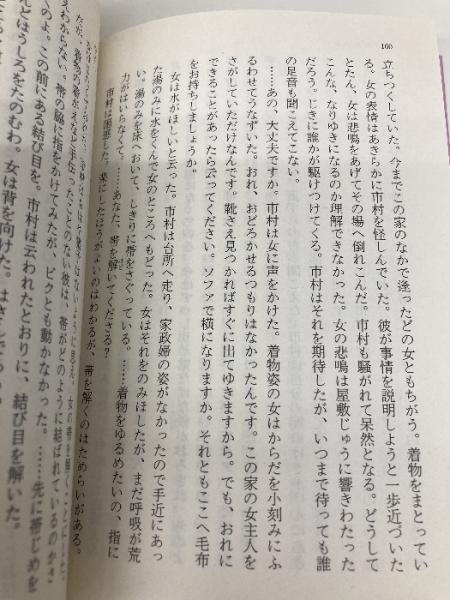 160
立ちつくしていた。今までこの家のなかで逢ったどの女ともちがう。着物をまとってい
る。女の表情はあきらかに市村を怪しんでいた。彼が事情を説明しようと一歩近づいた
とたん、女は悲鳴をあげてその場へ倒れこんだ。市村も騒がれて呆然となる。どうして
こんな、なりゆきになるのか理解できなかった。女の悲鳴は屋敷じゅうに響きわたった
だろう。じきに誰かが駆けつけてくる。市村はそれを期待したが、いつまで待っても誰
の足音も聞こえてこない。
……あの、大丈夫ですか。市村は女に声をかけた。着物姿の女はからだを小刻みにふ
るわせてうなずいた。おれ、おどろかせるつもりはなかったんです。この家の女主人を
さがしていただけなんです。靴さえ見つかればすぐに出てゆきますから。でも、おれに
できることがあったら云ってください。ソファで横になりますか。それともここへ毛布
をお持ちしましょうか。
女は水がほしいと云った。市村は台所へ走り、家政婦の姿がなかったので手近にあっ
た湯のみに水をくんで女のところへもどった。女はそれをのみほしたが、まだ呼吸が荒
い。湯のみを床へおいて、しきりに帯をさぐっている。……着物をゆるめたいの、指に
力がはいらなくて。……あなた、帯を解いてくださる？
市村は困惑した。楽にしたほうがよいのはわかるが、帯を解くのはためらいがある。
だが、
彼は、帯がどのように結ばれているのかさ
えわからない。帯の脇に指をかけてみたが、ビクとも動かなかった。……先に帯じめを
とほうしろをたのむわ。女は背を向けた。
のよ。この前にある結び目を。市村は云われたとおりに、結び目を解いた。